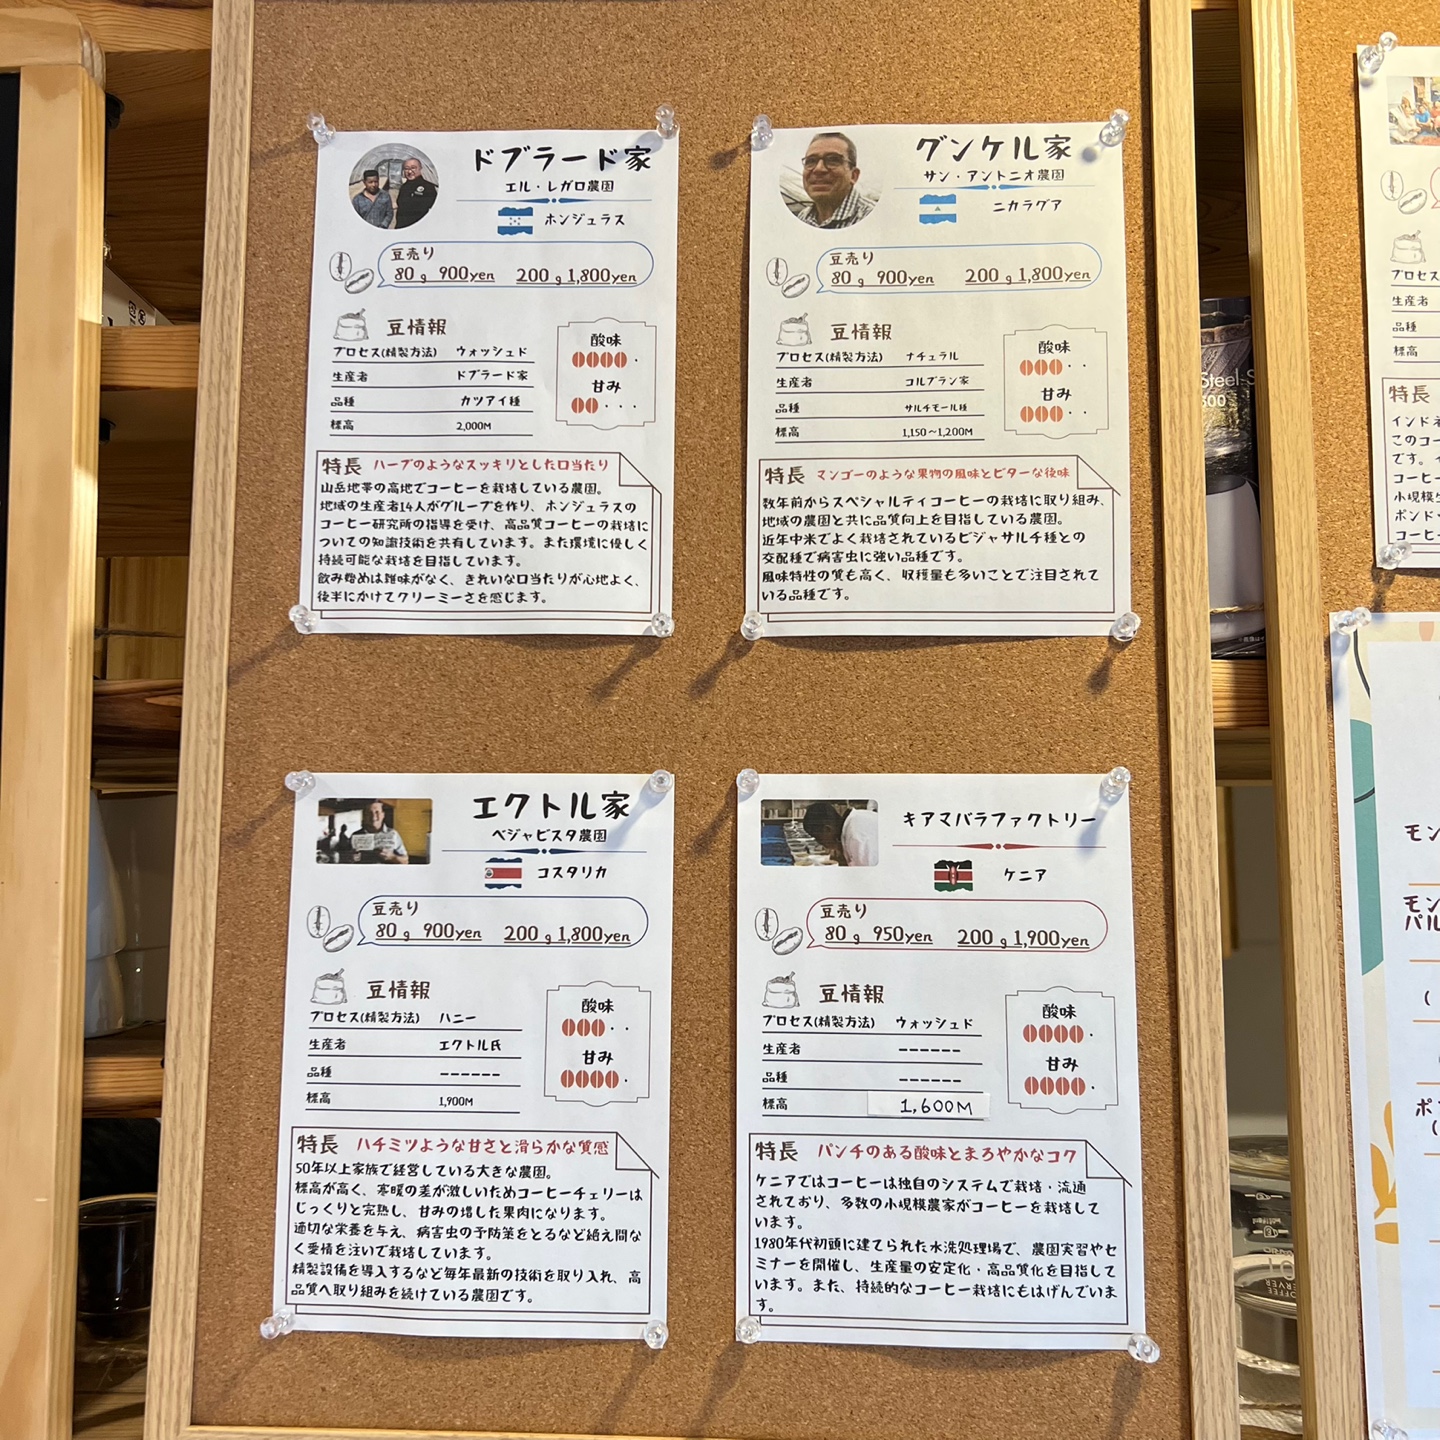 ドブラード家
エル・レガロ農園
ホンジュラス
豆売り
80g 900yen 200g 1,800yen
豆情報
プロセス(精製方法) ウォッシュド
生産者 ドブラード家
品種 カツアイ種
標高 2,000M
酸味
甘み
特長 ハーブのようなスッキリとした口当たり
山岳地帯の高地でコーヒーを栽培している農園。
地域の生産者14人がグループを作り、ホンジュラスの
コーヒー研究所の指導を受け、高品質コーヒーの栽培に
ついての知識技術を共有しています。また環境に優しく
持続可能な栽培を目指しています。
飲み始めは雑味がなく、きれいな口当たりが心地よく、
後半にかけてクリーミーさを感じます。
グンケル家
サン・アントニオ農園
ニカラグア
豆売り
80g 900yen 200g 1,800yen
豆情報
プロセス(精製方法) ナチュラル
生産者 コルブラン家
品種 サルチモール種
標高 1,150～1,200M
酸味
甘み
特長 マンゴーのような果物の風味とビターな後味
数年前からスペシャルティコーヒーの栽培に取り組み、
地域の農園と共に品質向上を目指している農園。
近年中米でよく栽培されているビジャサルチ種との
交配種で病害虫に強い品種です。
風味特性の質も高く、収穫量も多いことで注目されて
いる品種です。
エクトル家
ベジャビスタ農園
コスタリカ
豆売り
80g 900yen 200g 1,800yen
豆情報
プロセス(精製方法) ハニー
生産者 エクトル氏
品種 ------
標高 1,900M
酸味
甘み
特長 ハチミツような甘さと滑らかな質感
50年以上家族で経営している大きな農園。
標高が高く、寒暖の差が激しいためコーヒーチェリーは
じっくりと完熟し、甘みの増した果肉になります。
適切な栄養を与え、病害虫の予防策をとるなど絶え間な
く愛情を注いで栽培しています。
精製設備を導入するなど毎年最新の技術を取り入れ、高
品質へ取り組みを続けている農園です。
キアマバラファクトリー
ケニア
豆売り
80g 950yen 200g 1,900yen
豆情報
プロセス(精製方法) ウォッシュド
生産者 ------
品種 ------
標高 1,600M
酸味
甘み
特長 パンチのある酸味とまろやかなコク
ケニアではコーヒーは独自のシステムで栽培・流通
されており、多数の小規模農家がコーヒーを栽培して
います。
1980年代初頭に建てられた水洗処理場で、農園実習やセ
ミナーを開催し、生産量の安定化・高品質化を目指して
います。また、持続的なコーヒー栽培にもはげんでいま
す。
プロセス
生産者
品種
標高
特長
インドネ
このコー
です。イ
コーヒー
小規模生
ポンド・
コーヒー
モン
モン
パル
ポ
Steel-S
500